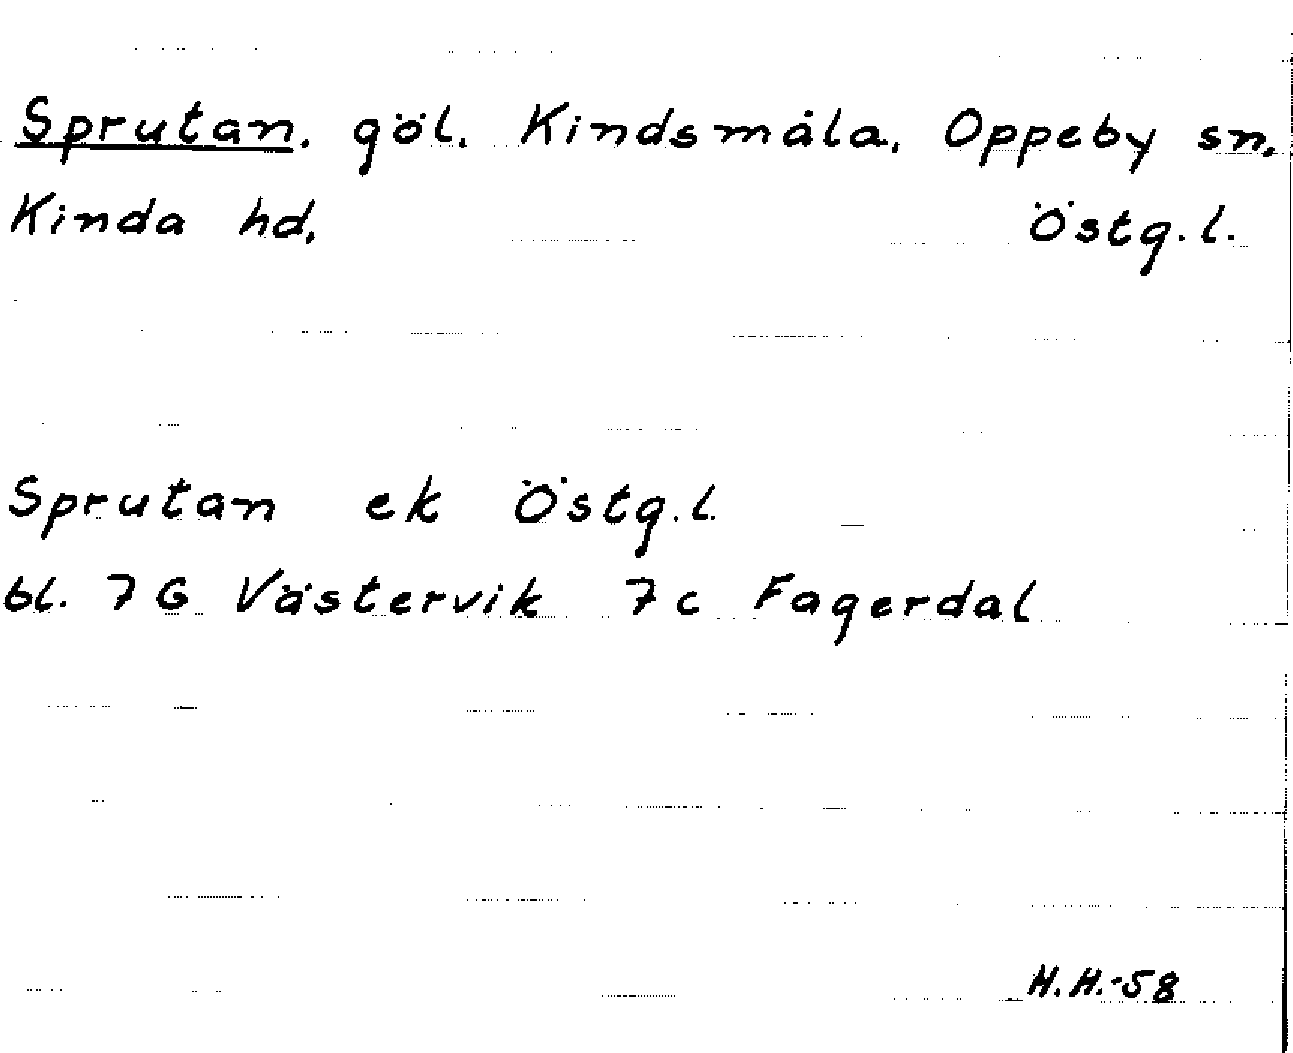 Sprutan. göl. Kindsmåla. Oppeby sn.
Kinda hd. Östg.l.
Sprutan ek Östg.l.
bl. 7G Västervik 7c Fagerdal
H.H.-58